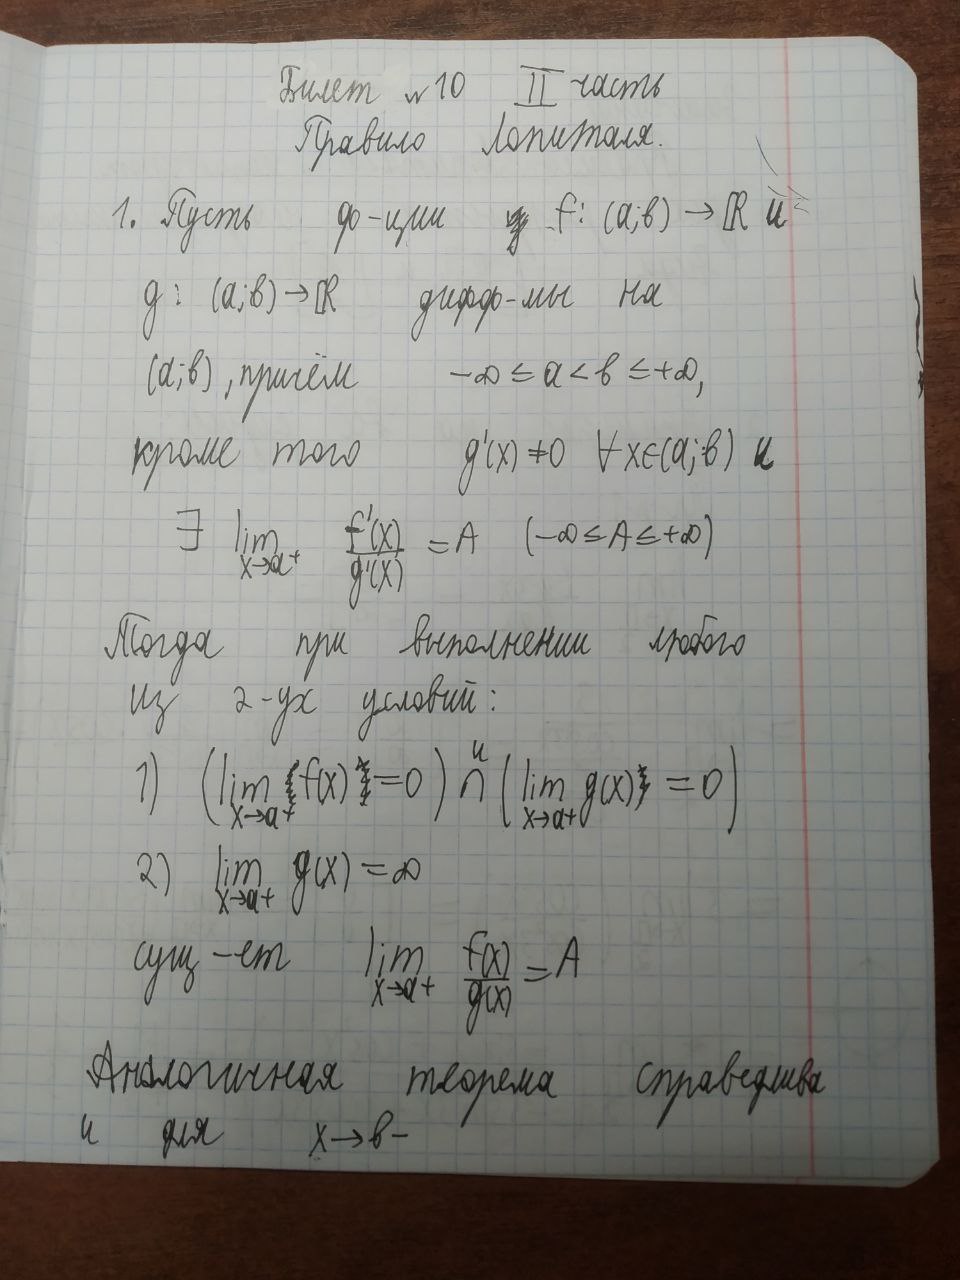 Билет №10 II часть
Правило Лопиталя.
1. Пусть ф-ции f: (a;b) → ℝ и
g: (a;b) → ℝ дифф-мы на
(a;b), причём -∞ ≤ a < b ≤ +∞,
кроме того g'(x) ≠ 0 ∀x∈(a;b) и
∃ lim x→a+ f'(x)/g'(x) = A (-∞ ≤ A ≤ +∞)
Тогда при выполнении любого
из 2-ух условий:
1) (lim x→a+ f(x) = 0) ∩ и (lim x→a+ g(x) = 0)
2) lim x→a+ g(x) = ∞
сущ-ет lim x→a+ f(x)/g(x) = A
Аналогичная теорема справедлива
и для x→b-